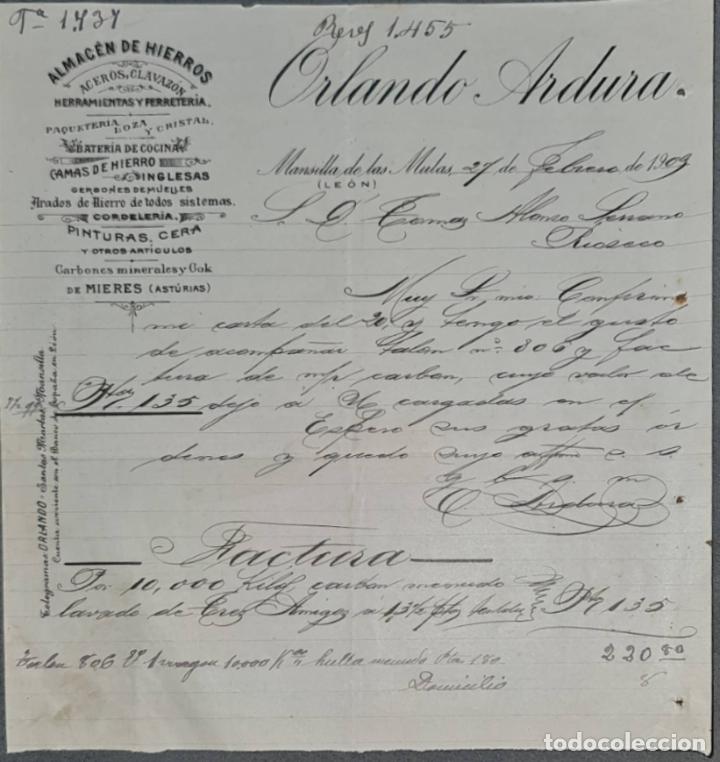 Tª 1,737
Rexp 1,455
ALMACÉN DE HIERROS
ACEROS, CLAVAZÓN
HERRAMIENTAS Y FERRETERÍA.
PAQUETERÍA LOZA Y CRISTAL.
BATERÍA DE COCINA
CAMAS DE HIERRO
INGLESAS
GERGONES DE MUELLES
Arados de Hierro de todos sistemas.
CORDELERÍA.
PINTURAS, CERA
Y OTROS ARTÍCULOS
Carbones minerales y Cok
DE MIERES (ASTÚRIAS)
Telegramas ORLANDO-Santas Martas Mansilla
Cuenta corriente con el Banco de España en León
Orlando Ardura.
Mansilla de las Mulas, 27 de Febrero de 1909
(LEÓN)
S. D. Tomas Alonso
Rioseco
Muy Sr. mio: Confirmo
me carta del 20, y tengo el gusto
de acompañar talón nº. 806 y fac
tura de m/ carbon, cuyo valor de
Ptas. 135 dejo á V. cargadas en c/.
Espero sus gratas ór
denes y quedo suyo affmo s. s.
q b s m
O. Ardura
Factura
Por 10,000 Kilos carbon menudo
lavado de Tres Amigos á Ptas 135
Talon 806 1 wagon 10.000 Ks hulla menudo Ptas 180.
220 80
Domicilio
todocoleccion.net